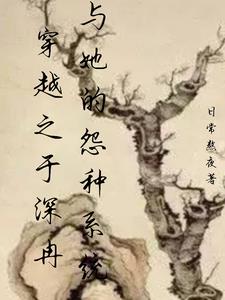 穿越之于深冉
与她的怨种系统
日常熬夜著